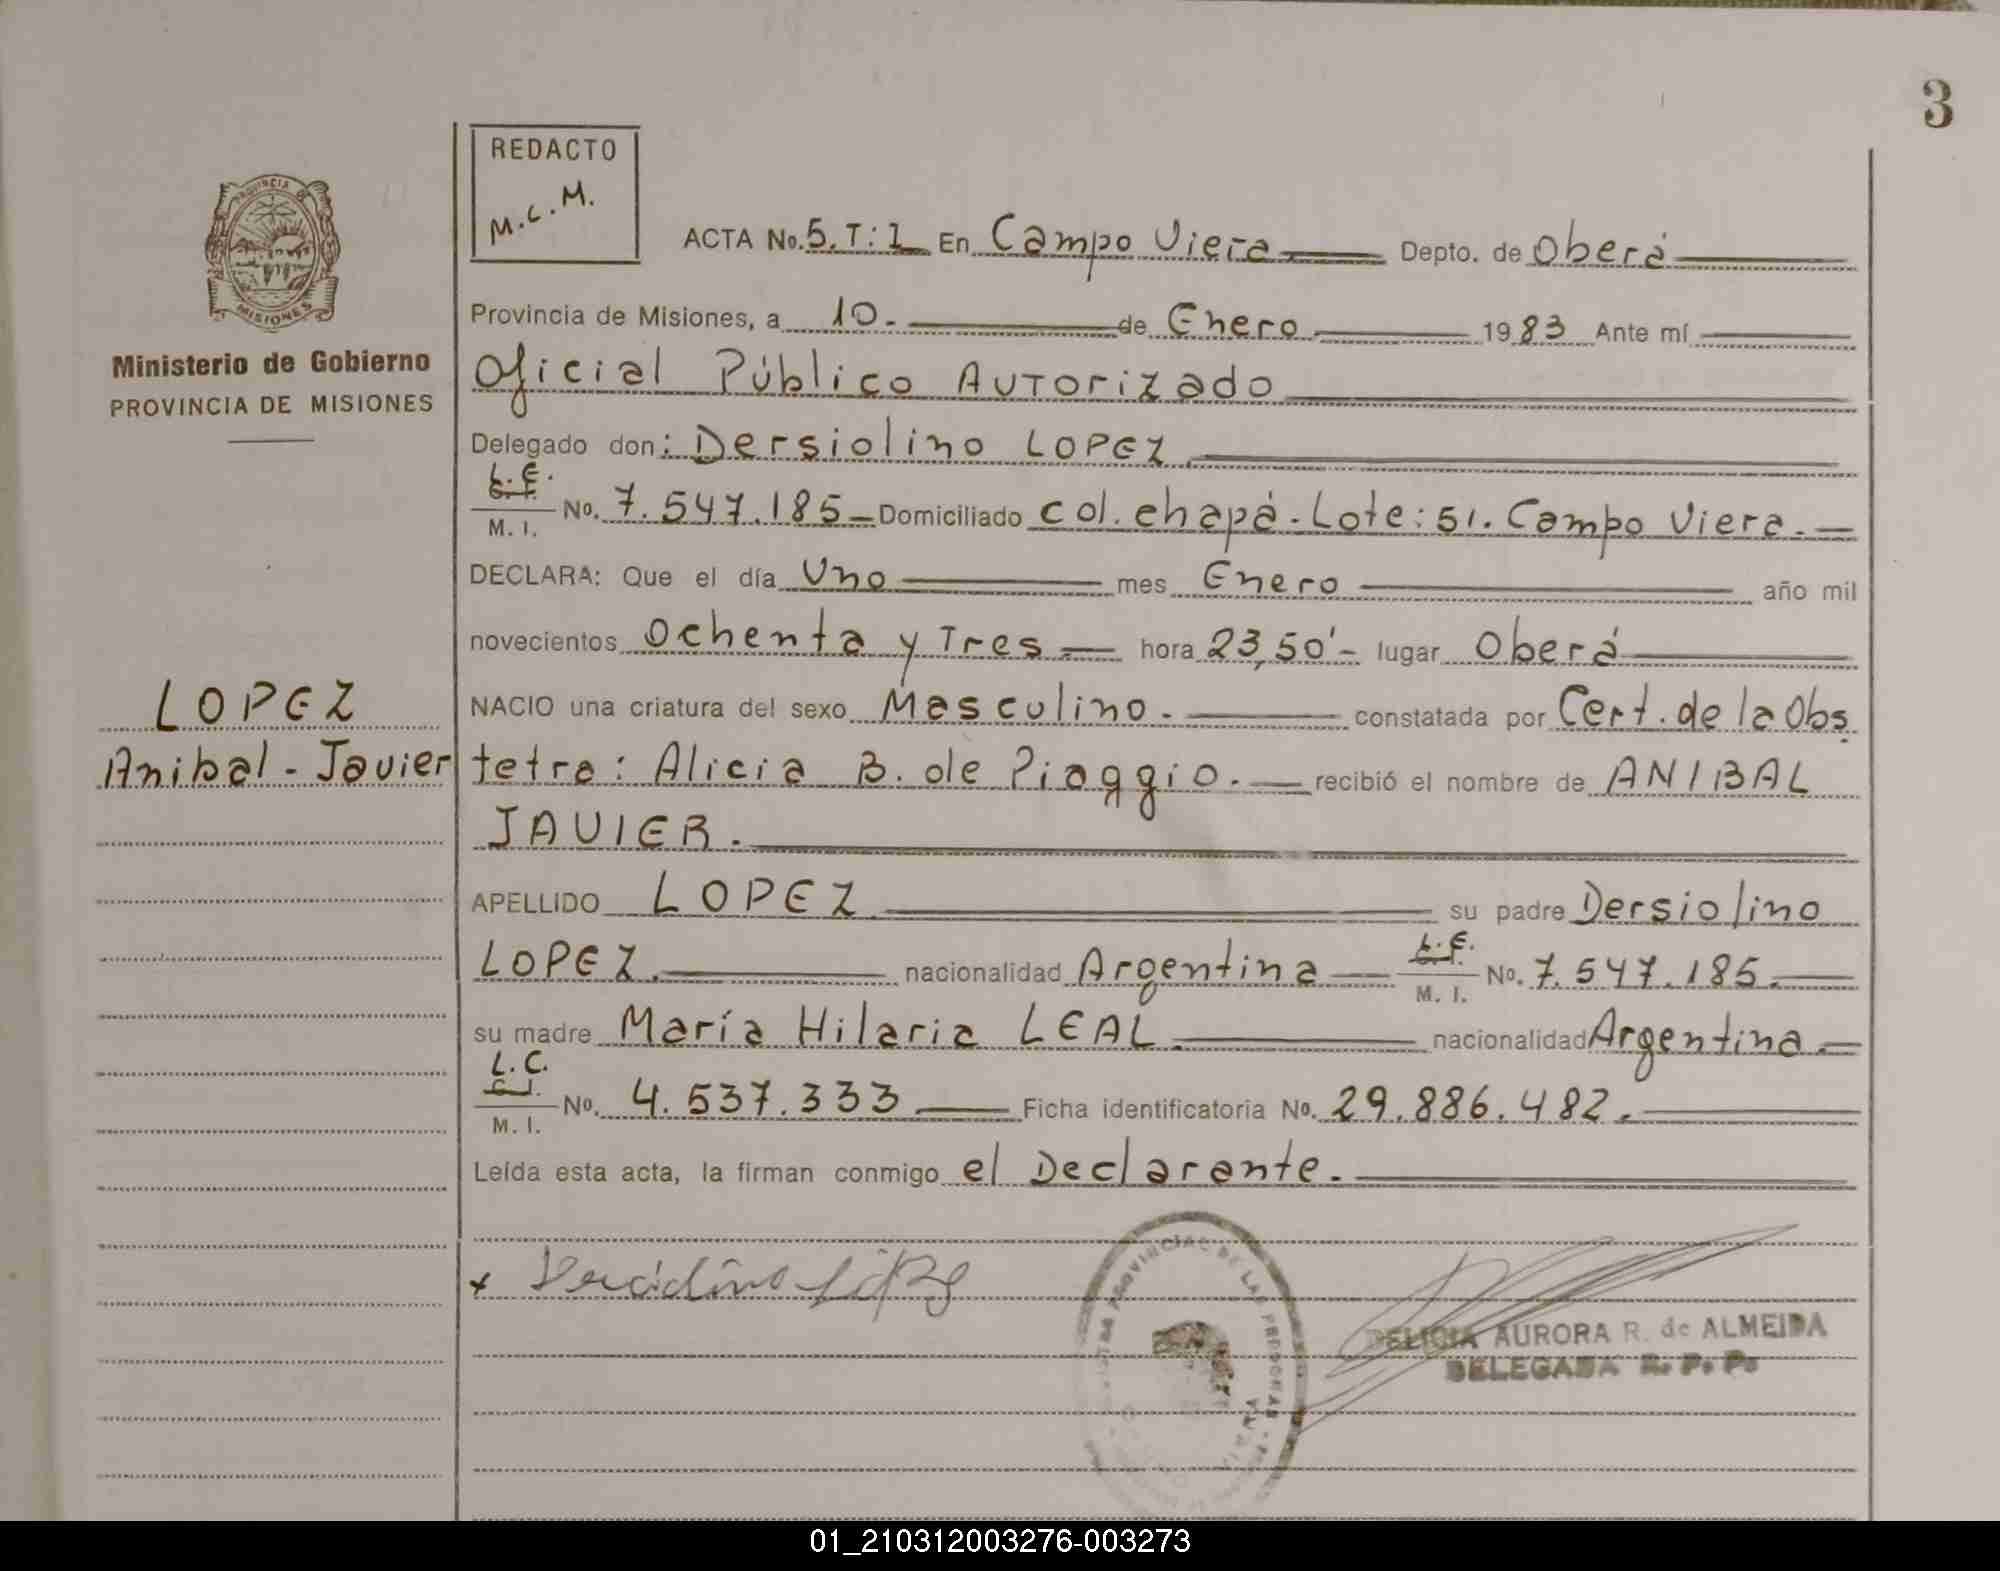 3
REDACTO
M.C.M.
PROVINCIA DE
MISIONES
Ministerio de Gobierno
PROVINCIA DE MISIONES
ACTA No. 5. T: 1 En Campo Viera Depto. de Oberá
Provincia de Misiones, a 10. de Enero 1983 Ante mí
Oficial Público Autorizado
Delegado don: Dersiolino LOPEZ
L.E.
M. I. No. 7.547.185 Domiciliado Col. chapá. Lote: 51. Campo Viera.
DECLARA: Que el día Uno mes Enero año mil
novecientos Ochenta y Tres hora 23,50' lugar Oberá
NACIO una criatura del sexo Masculino. constatada por Cert. de la Obs
tetra: Alicia B. de Piaggio. recibió el nombre de ANIBAL
JAVIER.
LOPEZ
Anibal - Javier
APELLIDO LOPEZ su padre Dersiolino
LOPEZ. nacionalidad Argentina L.E. M. I. No. 7.547.185.
su madre María Hilaria LEAL nacionalidad Argentina.
L.C.
C. I.
M. I. No. 4.537.333 Ficha identificatoria No. 29.886.482.
Leída esta acta, la firman conmigo el Declarante.
PROVINCIAL DE LAS PERSONAS
DELICIA AURORA R. de ALMEIDA
DELEGADA R. P. P.
01_210312003276-003273